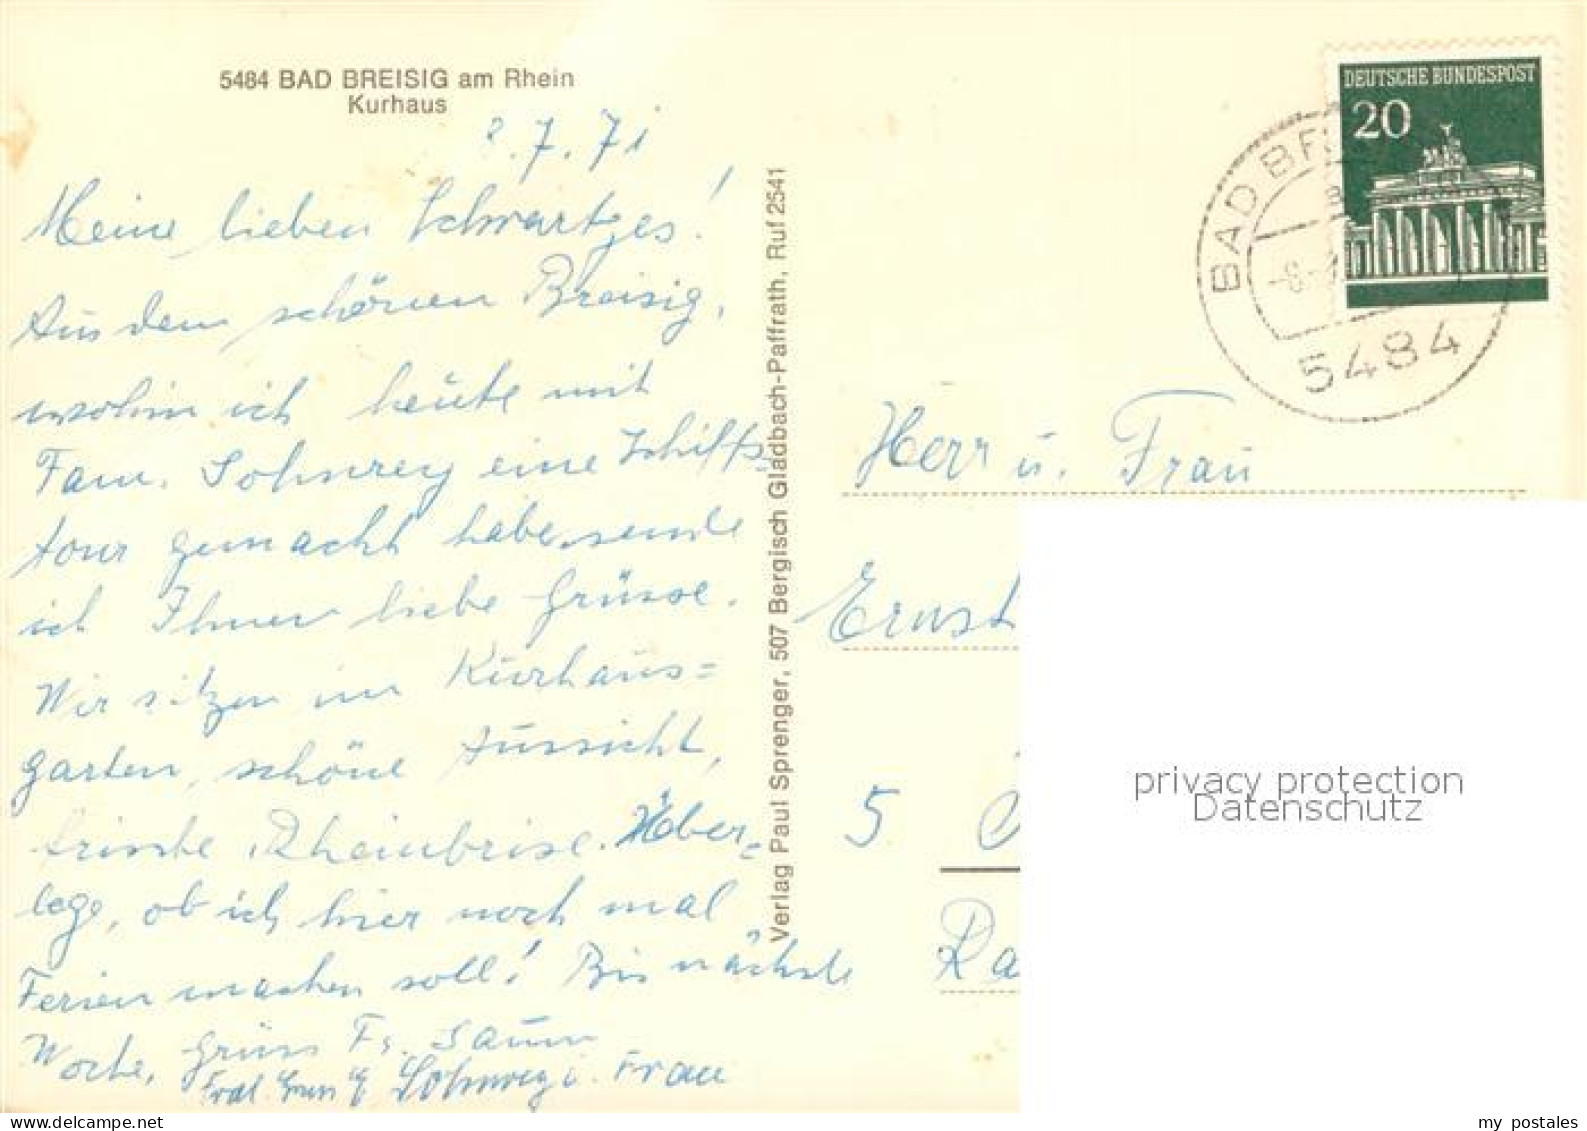 5484 BAD BREISIG am Rhein
Kurhaus
8.7.71
Meine lieben Schwartzes!
Aus dem schönen Breisig,
wohin ich heute mit
Fam. Sohnrey eine Schiffs-
tour gemacht habe, sende
ich Ihnen liebe Grüsse.
Wir sitzen im Kurhaus=
garten, schöne Aussicht,
frische Rheinbrise. Über=
lege, ob ich hier noch mal
Ferien machen soll! Bis nächste
Woche, Gruss Fr.
Sohnrey u. Frau
Verlag Paul Sprenger, 507 Bergisch Gladbach-Paffrath, Ruf 2541
DEUTSCHE BUNDESPOST
20
BAD BR
-8.-
5484
Herr u. Frau
Ernst
5
Ra
privacy protection
Datenschutz
my postales